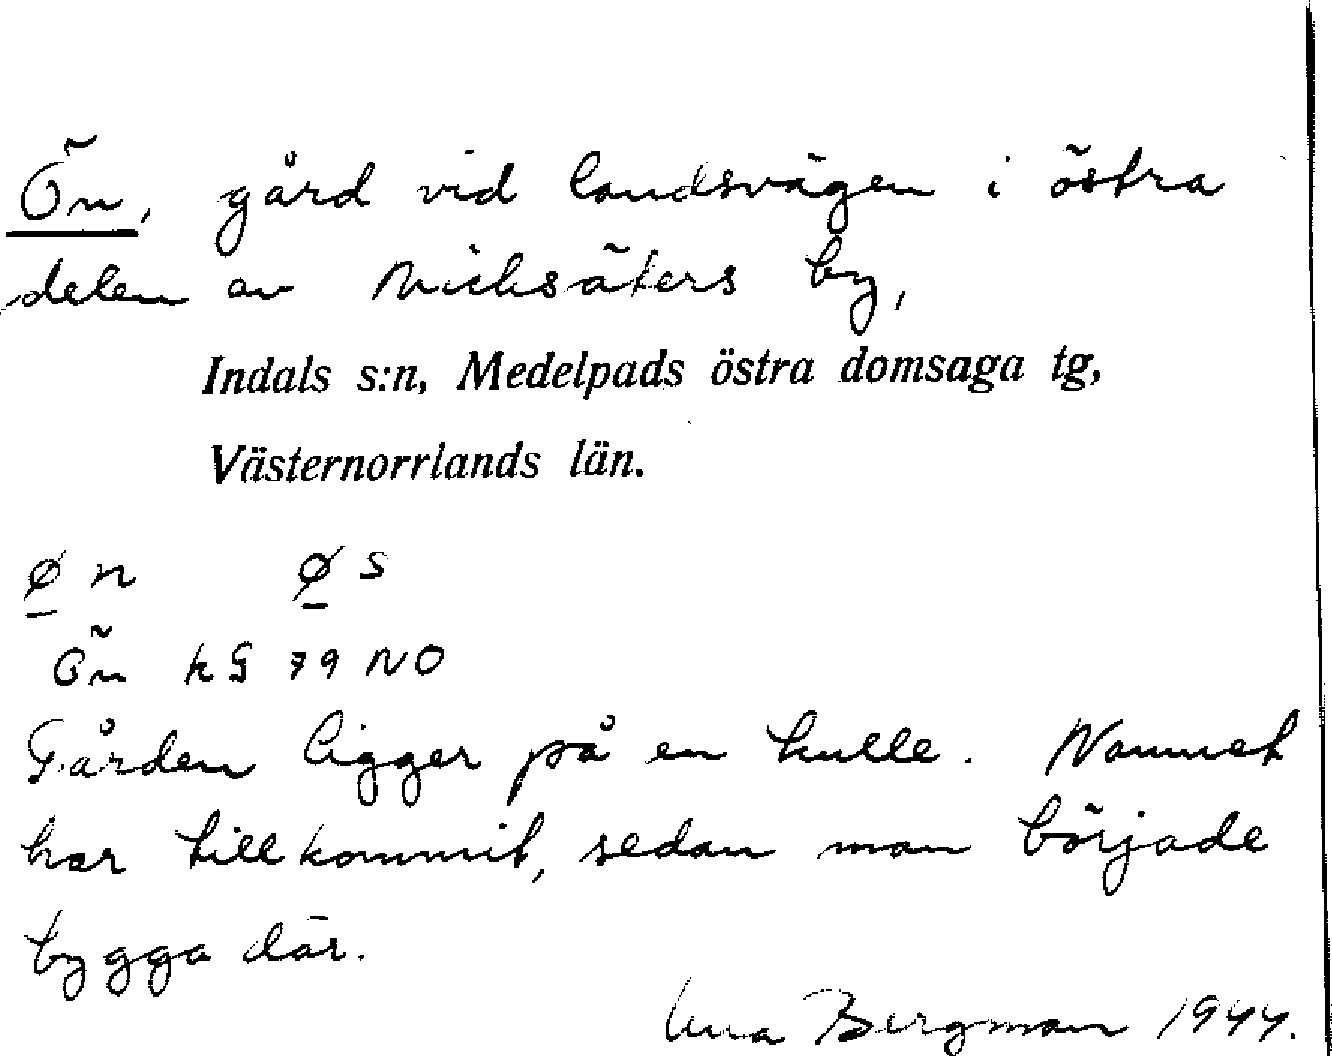 Ön, gård vid landsvägen i östra
delen av Nicksäters by,
Indals s:n, Medelpads östra domsaga tg,
Västernorrlands län.
ø n ø s
Ön kG 79 NO
Gården ligger på en kulle. Namnet
har tillkommit, sedan man började
bygga där.
Bergman 1944.